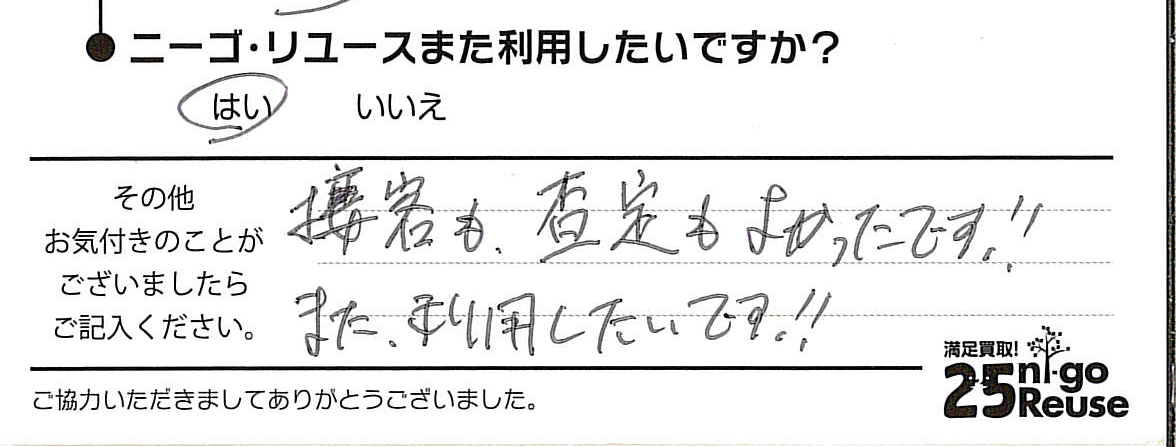 ● ニーゴ・リユースまた利用したいですか？
はい いいえ
その他
お気付きのことが
ございましたら
ご記入ください。
接客も、査定もよかったです!!
また、利用したいです!!
満足買取!
25 ni-go
Reuse
ご協力いただきましてありがとうございました。